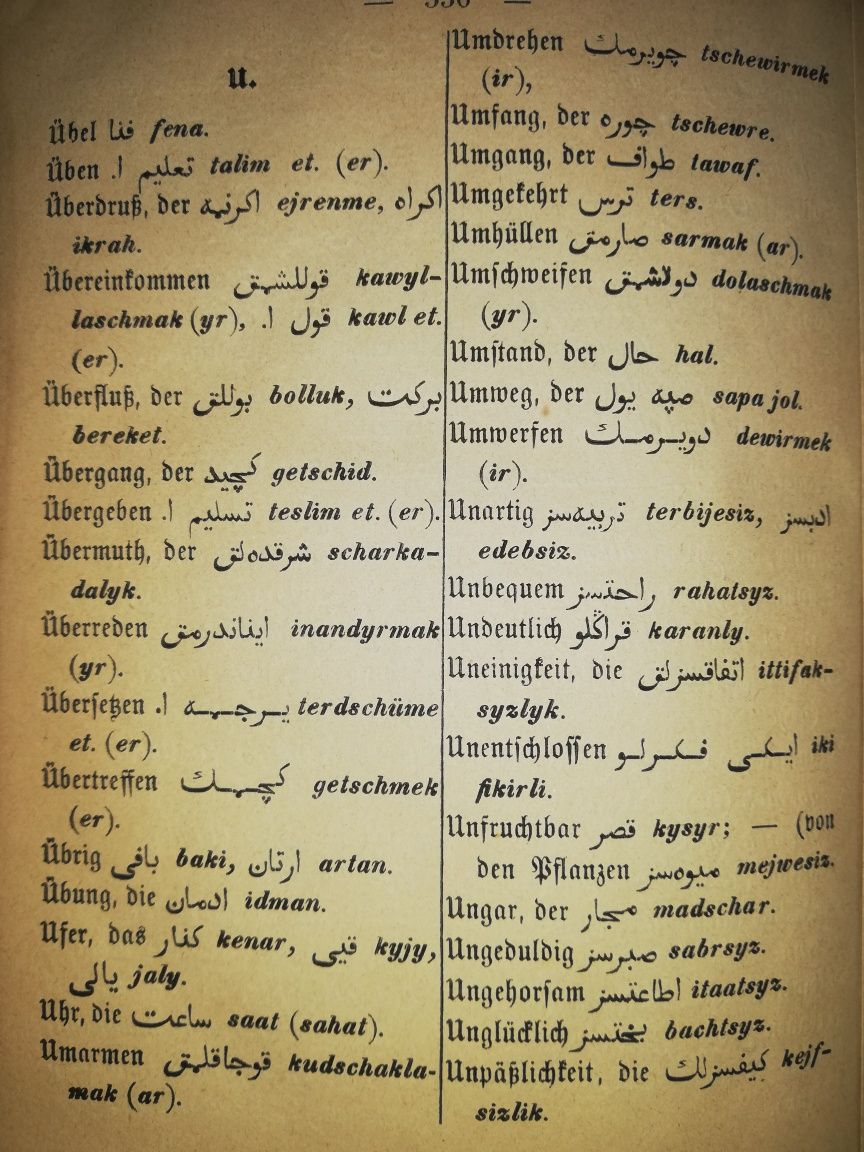 U.
Übel فنا fena.
Üben ا. تعليم talim et. (er).
Überdruß, der اكرنمه ejrenme, اكراه
ikrah.
Übereinkommen قوللشمق kawyl-
laschmak (yr), ا. قول kawl et.
(er).
Überfluß, der بوللق bolluk, بركت
bereket.
Übergang, der كچيد getschid.
Übergeben ا. تسليم teslim et. (er).
Übermuth, der شرقدهلق scharka-
dalyk.
Überreden ايناندرمق inandyrmak
(yr).
Übersetzen ا. terdschüme
et. (er).
Übertreffen كچمك getschmek
(er).
Übrig باقى baki, ارتان artan.
Übung, die ادمان idman.
Ufer, das كنار kenar, قيى kyjy,
يالى jaly.
Uhr, die ساعت saat (sahat).
Umarmen قوجاقلمق kudschakla-
mak (ar).
Umdrehen چويرمك tschewirmek
(ir),
Umfang, der چوره tschewre.
Umgang, der طواف tawaf.
Umgekehrt ترس ters.
Umhüllen صارمق sarmak (ar).
Umschweifen دولاشمق dolaschmak
(yr).
Umstand, der حال hal.
Umweg, der صپه يول sapa jol.
Umwerfen دويرمك dewirmek
(ir).
Unartig تربيهسز terbijesiz, ادبسز
edebsiz.
Unbequem راحتسز rahatsyz.
Undeutlich قراڭلو karanly.
Uneinigkeit, die اتفاقسزلق ittifak-
syzlyk.
Unentschlossen ايكى فكرلو iki
fikirli.
Unfruchtbar قصر kysyr; — (von
den Pflanzen ميوهسز mejwesiz.
Ungar, der مجار madschar.
Ungeduldig صبرسز sabrsyz.
Ungehorsam اطاعتسز itaatsyz.
Unglücklich بختسز bachtsyz.
Unpäßlichkeit, die كيفسزلك kejf-
sizlik.